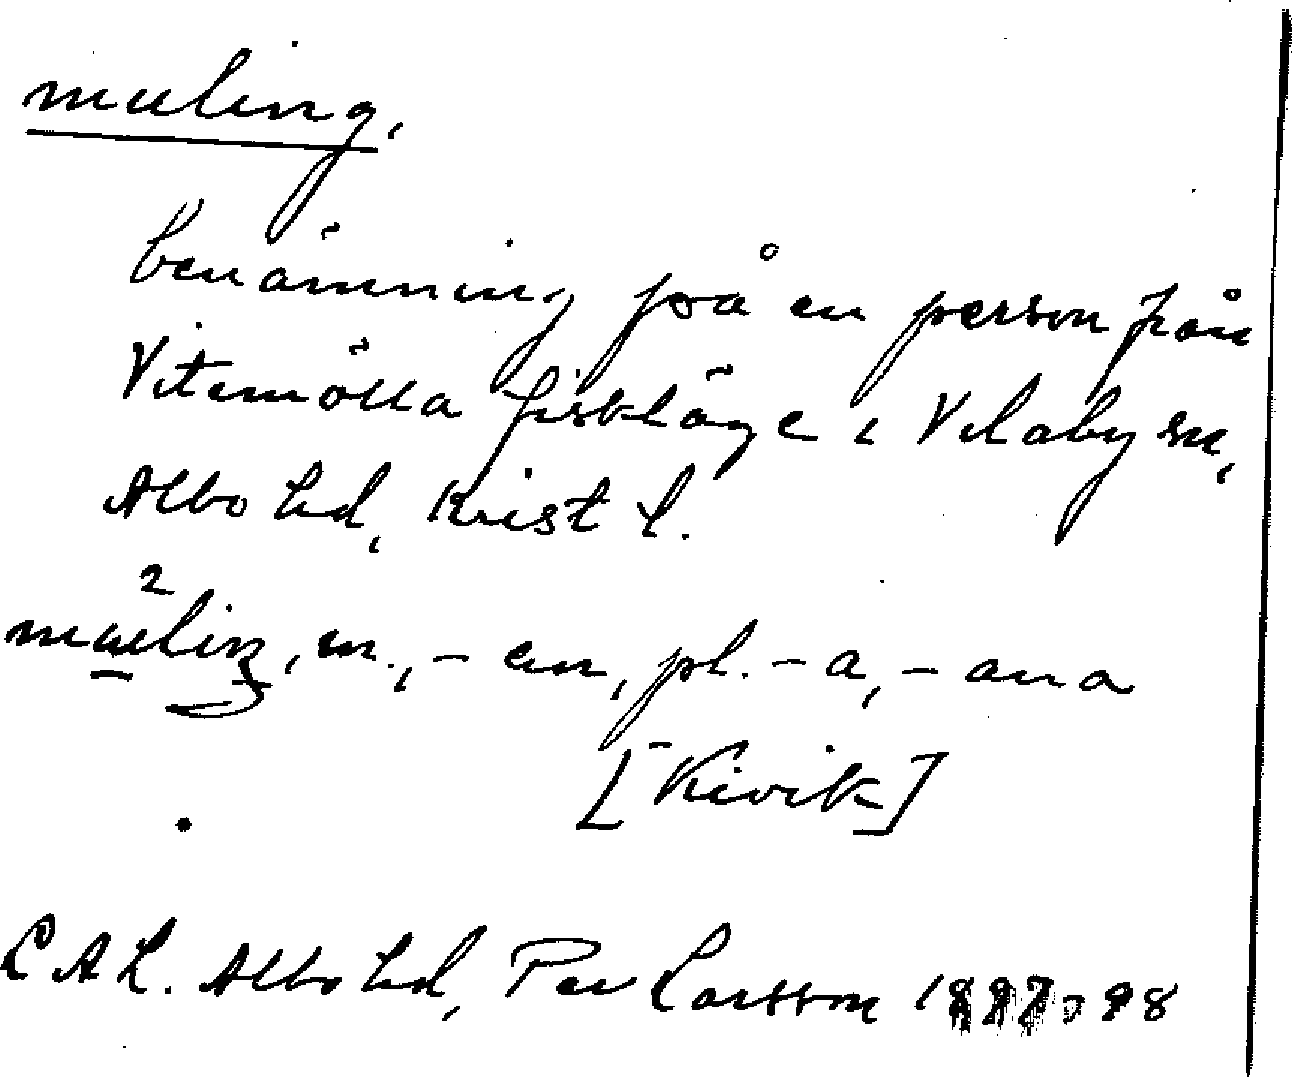 muling,
benämning på en person från
Vitemölla fiskläge i Vitaby sn,
Albo hd, Krist l.
m., -en, pl. -a, -ana
[Kivik]
L A L. Albo hd, Per Larsson 1897, 98